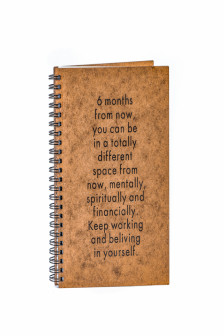 6 months
from now,
you can be
in a totally
different
space from
now, mentally,
spiritually and
financially.
Keep working
and beliving
in yourself.